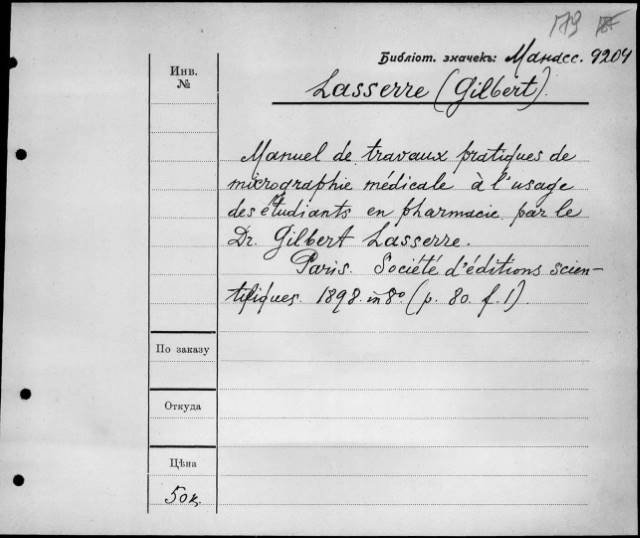 179
Библіот. значекъ: Манасс. 9204
Инв.
№
Lasserre (Gilbert).
Manuel de travaux pratiques de
micrographie médicale à l'usage
des étudiants en pharmacie par le
Dr. Gilbert Lasserre.
Paris. Société d'éditions scien-
tifiques. 1898. in 8º (p. 80. f. 1).
По заказу
Откуда
Цѣна
50к.